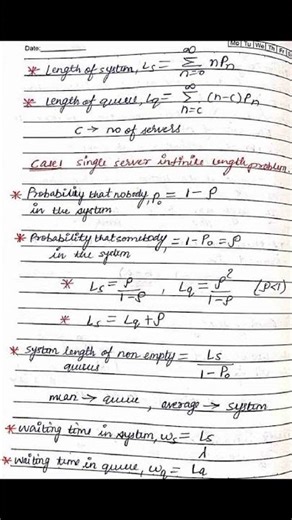 Date:
Mo Tu We Th Fr
* Length of system, Ls = ∞Σn=0 nPn
* length of queue, Lq = ∞Σn=c (n-c)Pn
c → no of servers
Case 1 single server infinite length problem.
* Probability that nobody, P0 = 1 - ρ
in the system
* Probability that somebody, = 1 - P0 = ρ
in the system
* Ls = ρ/1-ρ , Lq = ρ²/1-ρ (ρ<1)
* Ls = Lq + ρ
* system length of non empty = Ls/1-P0
queues
mean → queue , average → system
* waiting time in system, ws = Ls/λ
* waiting time in queue, wq = Lq